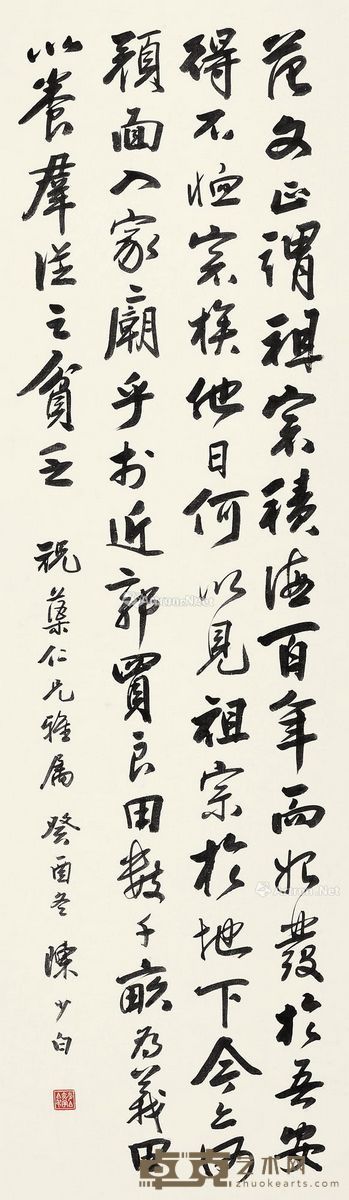 范文正謂祖宗積德百年而始發於吾安
得不恤宗族他日何以見祖宗於地下今亦何
顏面入家廟乎於近郭買良田數千畝為義田
以養群從之貧乏
祝蕖仁兄雅屬 癸酉冬 陳少白
AntrueNet
AntrueNet
卓克艺术网
www.zhuokearts.com